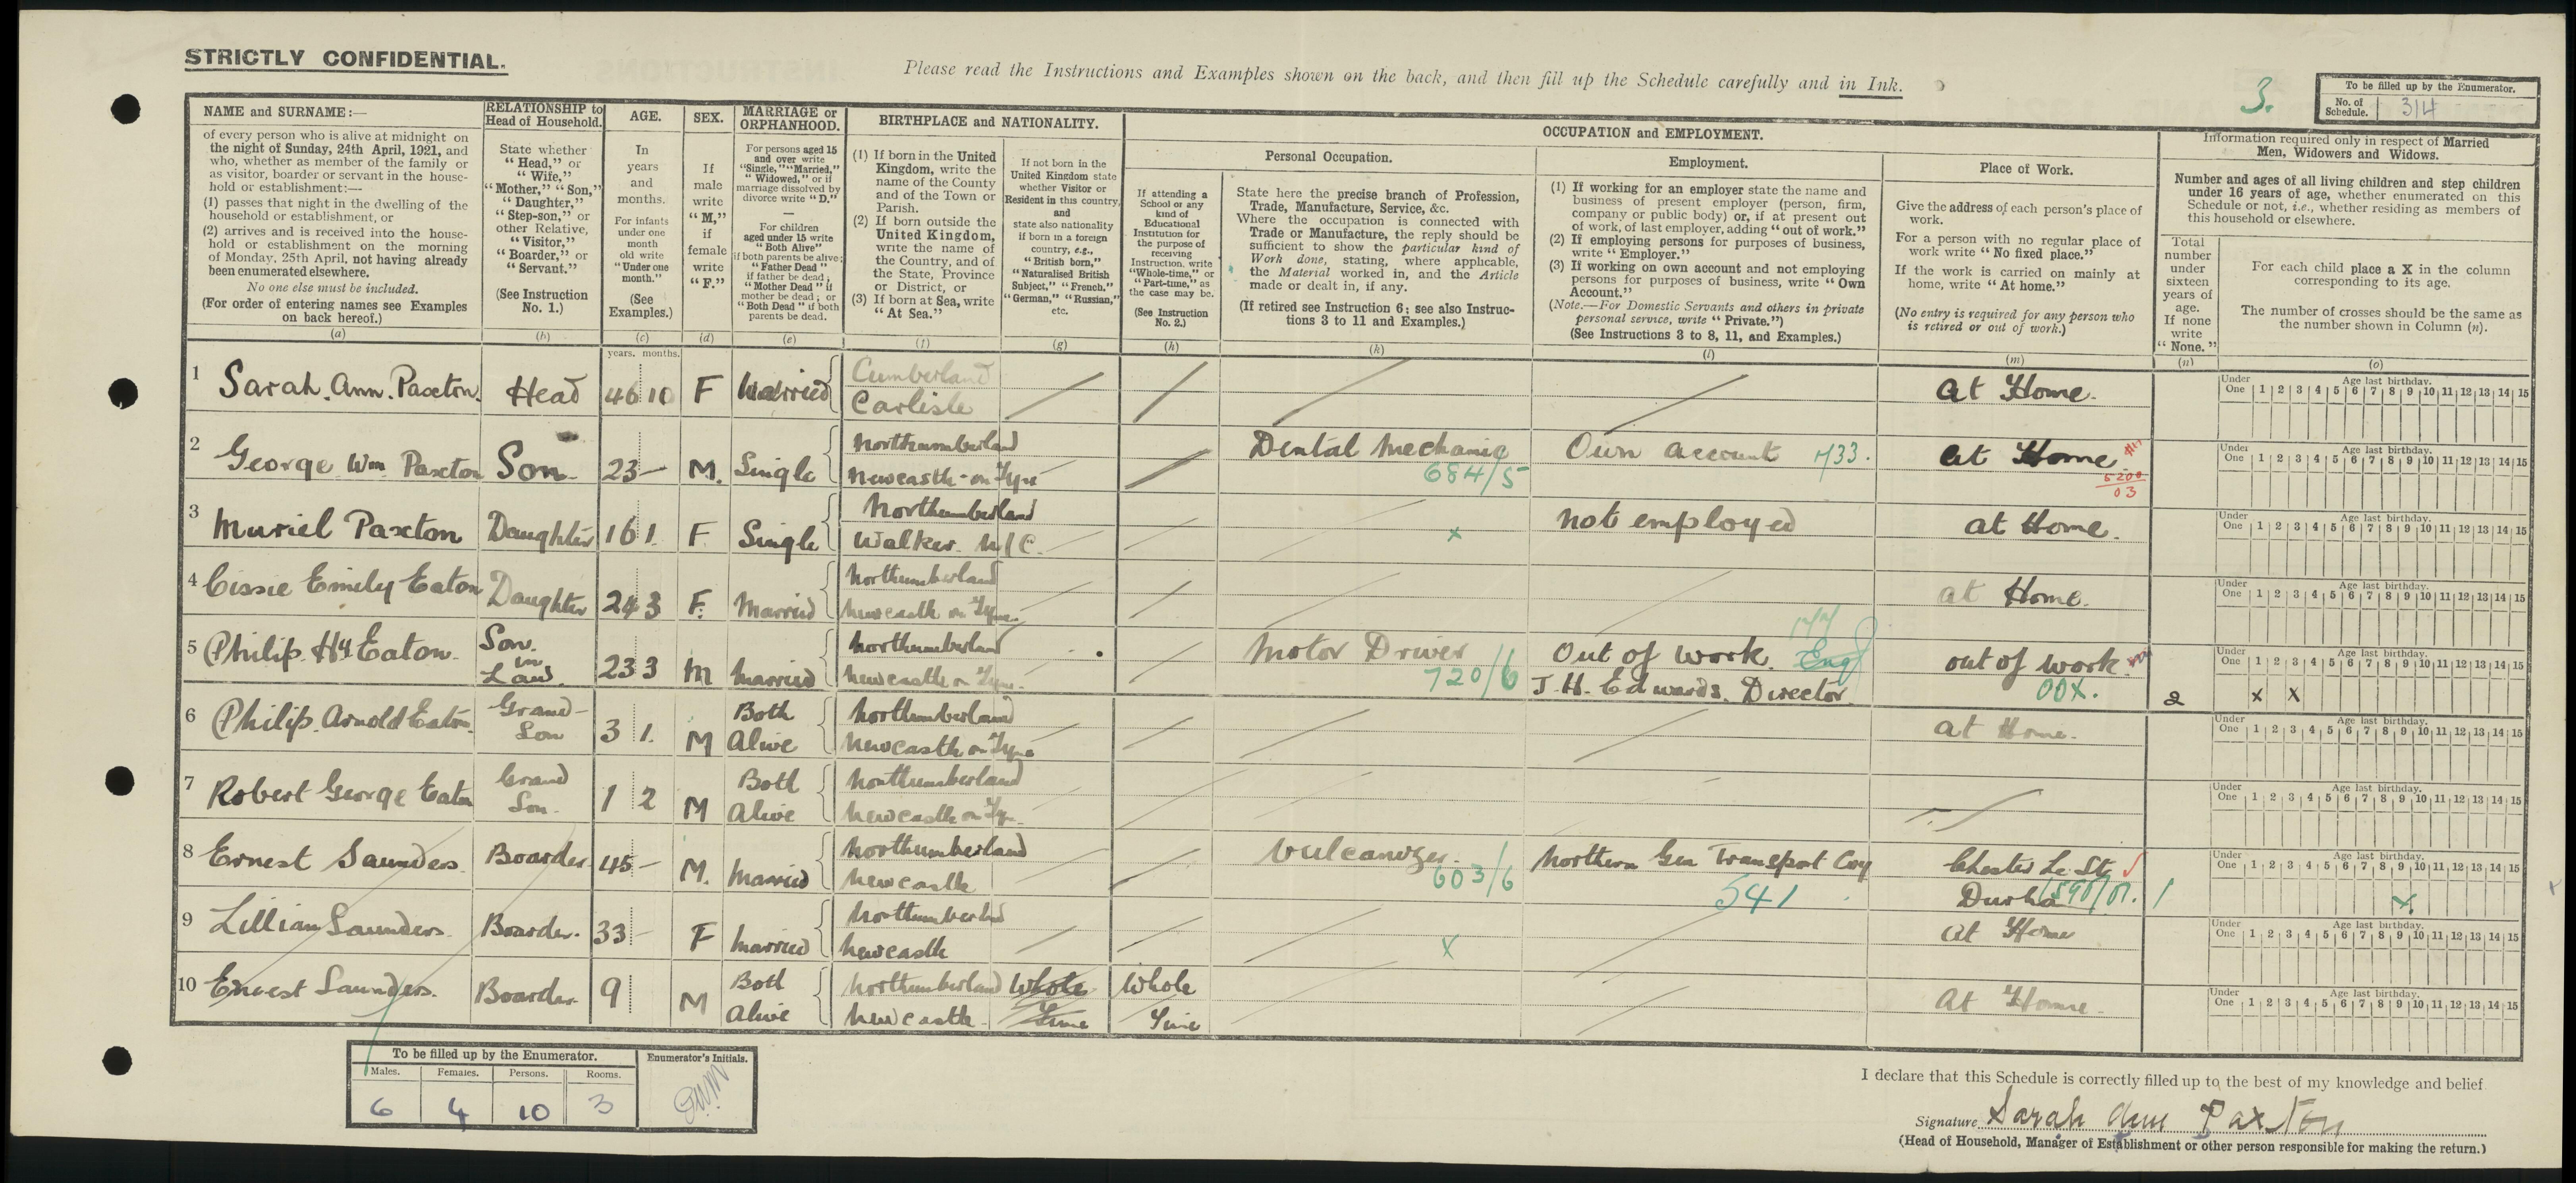 STRICTLY CONFIDENTIAL.
Please read the Instructions and Examples shown on the back, and then fill up the Schedule carefully and in Ink.
3.
To be filled up by the Enumerator.
No. of Schedule. 314
NAME and SURNAME:—
of every person who is alive at midnight on
the night of Sunday, 24th April, 1921, and
who, whether as member of the family or
as visitor, boarder or servant in the house-
hold or establishment:—
(1) passes that night in the dwelling of the
household or establishment, or
(2) arrives and is received into the house-
hold or establishment on the morning
of Monday, 25th April, not having already
been enumerated elsewhere.
No one else must be included.
(For order of entering names see Examples
on back hereof.)
(a)
RELATIONSHIP to
Head of Household.
State whether
"Head," or
"Wife,"
"Mother," "Son,"
"Daughter,"
"Step-son," or
other Relative,
"Visitor,"
"Boarder," or
"Servant."
(See Instruction
No. 1.)
(b)
AGE.
In
years
and
months.
For infants
under one
month
old write
"Under one
month."
(See
Examples.)
(c)
years. months.
SEX.
If
male
write
"M,"
if
female
write
"F."
(d)
MARRIAGE or
ORPHANHOOD.
For persons aged 15
and over write
"Single," "Married,"
"Widowed," or if
marriage dissolved by
divorce write "D."
—
For children
aged under 15 write
"Both Alive"
if both parents be alive;
"Father Dead"
if father be dead;
"Mother Dead" if
mother be dead; or
"Both Dead" if both
parents be dead.
(e)
BIRTHPLACE and NATIONALITY.
(1) If born in the United
Kingdom, write the
name of the County
and of the Town or
Parish.
(2) If born outside the
United Kingdom,
write the name of
the Country, and of
the State, Province
or District, or
(3) If born at Sea, write
"At Sea."
(f)
If not born in the
United Kingdom state
whether Visitor or
Resident in this country,
and
state also nationality
if born in a foreign
country, e.g.,
"British born,"
"Naturalised British
Subject," "French,"
"German," "Russian,"
etc.
(g)
OCCUPATION and EMPLOYMENT.
Personal Occupation.
If attending a
School or any
kind of
Educational
Institution for
the purpose of
receiving
Instruction, write
"Whole-time," or
"Part-time," as
the case may be.
(See Instruction
No. 2.)
(h)
State here the precise branch of Profession,
Trade, Manufacture, Service, &c.
Where the occupation is connected with
Trade or Manufacture, the reply should be
sufficient to show the particular kind of
Work done, stating, where applicable,
the Material worked in, and the Article
made or dealt in, if any.
(If retired see Instruction 6; see also Instruc-
tions 3 to 11 and Examples.)
(k)
Employment.
(1) If working for an employer state the name and
business of present employer (person, firm,
company or public body) or, if at present out
of work, of last employer, adding "out of work."
(2) If employing persons for purposes of business,
write "Employer."
(3) If working on own account and not employing
persons for purposes of business, write "Own
Account."
(Note.—For Domestic Servants and others in private
personal service, write "Private.")
(See Instructions 3 to 8, 11, and Examples.)
(l)
Place of Work.
Give the address of each person's place of
work.
For a person with no regular place of
work write "No fixed place."
If the work is carried on mainly at
home, write "At home."
(No entry is required for any person who
is retired or out of work.)
(m)
Information required only in respect of Married
Men, Widowers and Widows.
Number and ages of all living children and step children
under 16 years of age, whether enumerated on this
Schedule or not, i.e., whether residing as members of
this household or elsewhere.
Total
number
under
sixteen
years of
age.
If none
write
"None."
(n)
For each child place a X in the column
corresponding to its age.
The number of crosses should be the same as
the number shown in Column (n).
(o)
Under One Age last birthday. 1 2 3 4 5 6 7 8 9 10 11 12 13 14 15
1 Sarah Ann Paxton. Head 46 10 F Married Cumberland Carlisle at Home.
Under One Age last birthday. 1 2 3 4 5 6 7 8 9 10 11 12 13 14 15
2 George Wm Paxton Son 23 – M. Single Northumberland Newcastle-on-Tyne Dental Mechanic 684/5 Own account 433. at Home 5200 03
Under One Age last birthday. 1 2 3 4 5 6 7 8 9 10 11 12 13 14 15
3 Muriel Paxton Daughter 16 1. F Single Northumberland Walker N/C. x not employed at Home.
Under One Age last birthday. 1 2 3 4 5 6 7 8 9 10 11 12 13 14 15
4 Cissie Emily Eaton Daughter 24 3 F. Married Northumberland Newcastle on Tyne at Home.
Under One Age last birthday. 1 2 3 4 5 6 7 8 9 10 11 12 13 14 15
5 Philip Hy Eaton Son in Law. 23 3 M Married Northumberland Newcastle on Tyne. Motor Driver 720/6 Out of work. Eng J. H. Edwards. Director. out of work. 00X. 2 x x
Under One Age last birthday. 1 2 3 4 5 6 7 8 9 10 11 12 13 14 15
6 Philip Arnold Eaton Grand-Son 3 1. M Both Alive Northumberland Newcastle on Tyne at Home.
Under One Age last birthday. 1 2 3 4 5 6 7 8 9 10 11 12 13 14 15
7 Robert George Eaton Grand Son. 1 2 M Both Alive Northumberland Newcastle on Tyne.
Under One Age last birthday. 1 2 3 4 5 6 7 8 9 10 11 12 13 14 15
8 Ernest Saunders. Boarder 45 – M. Married Northumberland Newcastle Vulcanizer. 603/6 Northern Gen Transport Coy 541 Chester Le St. Durham 1 x
Under One Age last birthday. 1 2 3 4 5 6 7 8 9 10 11 12 13 14 15
9 Lillian Saunders. Boarder. 33 – F Married Northumberland Newcastle x at Home
Under One Age last birthday. 1 2 3 4 5 6 7 8 9 10 11 12 13 14 15
10 Ernest Saunders. Boarder 9 M Both Alive Northumberland Newcastle Whole Time Whole Time At Home.
To be filled up by the Enumerator.
Males. Females. Persons. Rooms.
6 4 10 3
Enumerator's Initials.
I declare that this Schedule is correctly filled up to the best of my knowledge and belief
Signature Sarah Ann Paxton
(Head of Household, Manager of Establishment or other person responsible for making the return.)